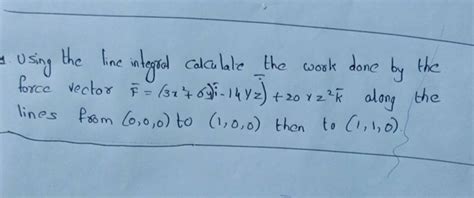 Using the line integral calculate the work done by the
force vector F̄ = (3x²+6y)ī - 14yz j̄ + 20xz² k̄ along the
lines from (0,0,0) to (1,0,0) then to (1,1,0).